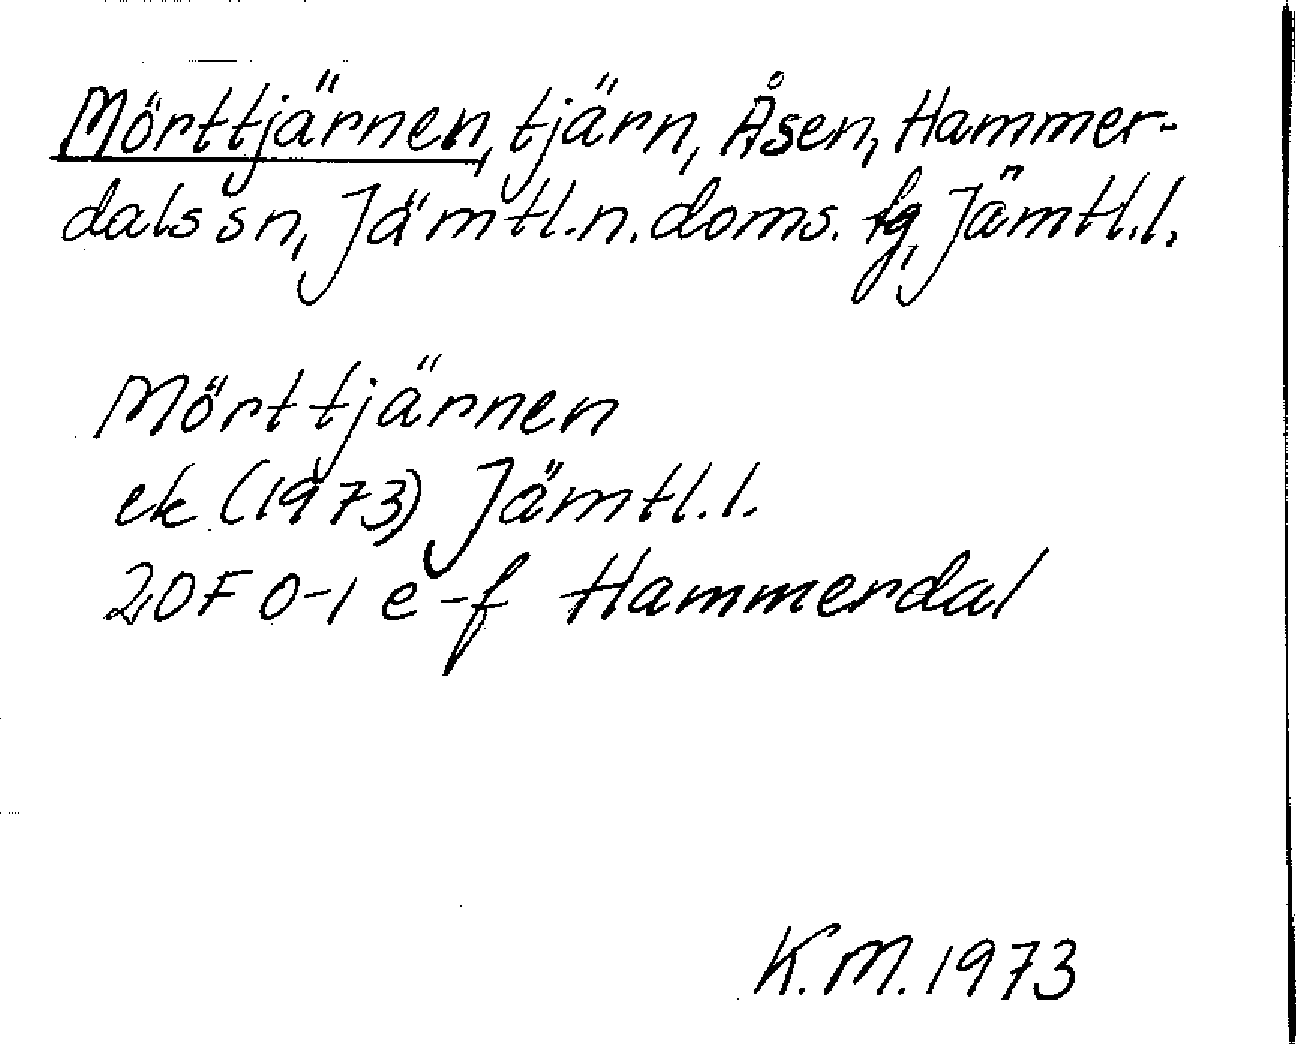 Mörttjärnen, tjärn, Åsen, Hammer-
dals sn, Jämtl.n.doms. fg, Jämtl.l.
Mörttjärnen
ek (1973) Jämtl.l.
20F 0-1 e-f Hammerdal
K.M. 1973